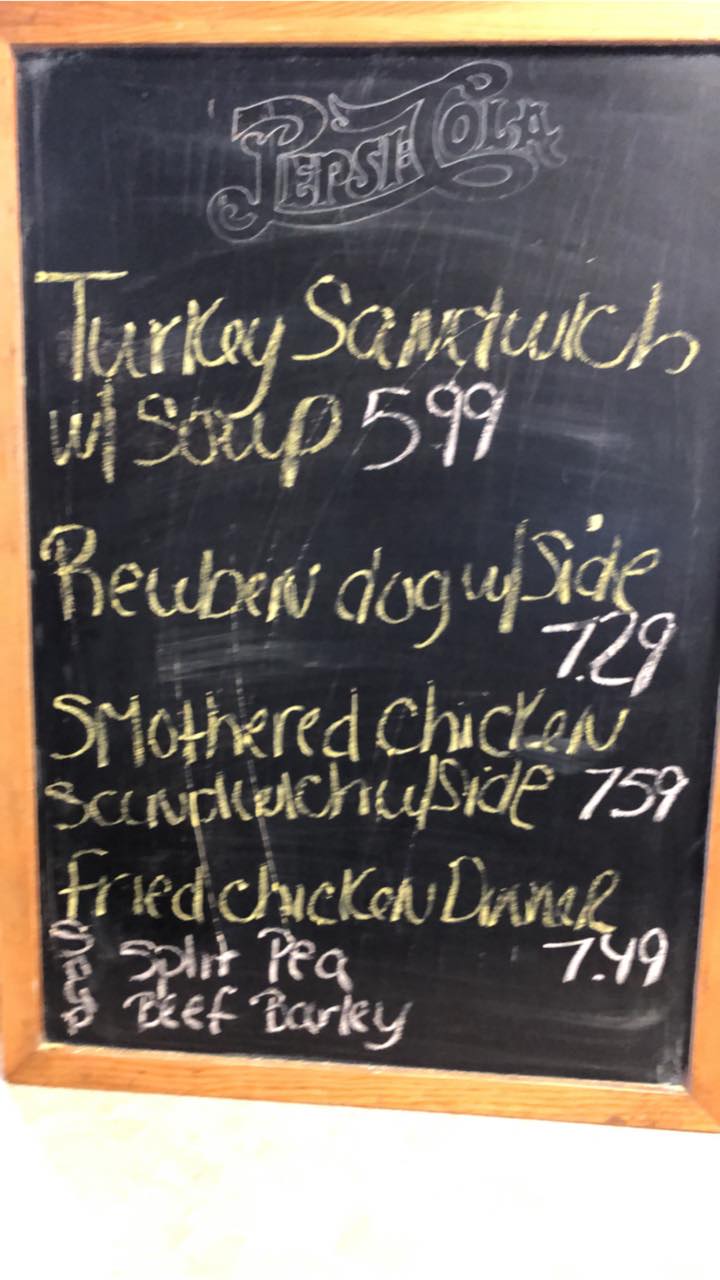 PEPSI COLA
Turkey Sandwich
w/ Soup 599
Reuben dog w/ Side
7.29
Smothered Chicken
Sandwich w/ Side 759
Fried chicken Dinner
7.49
Soup
Split Pea
Beef Barley